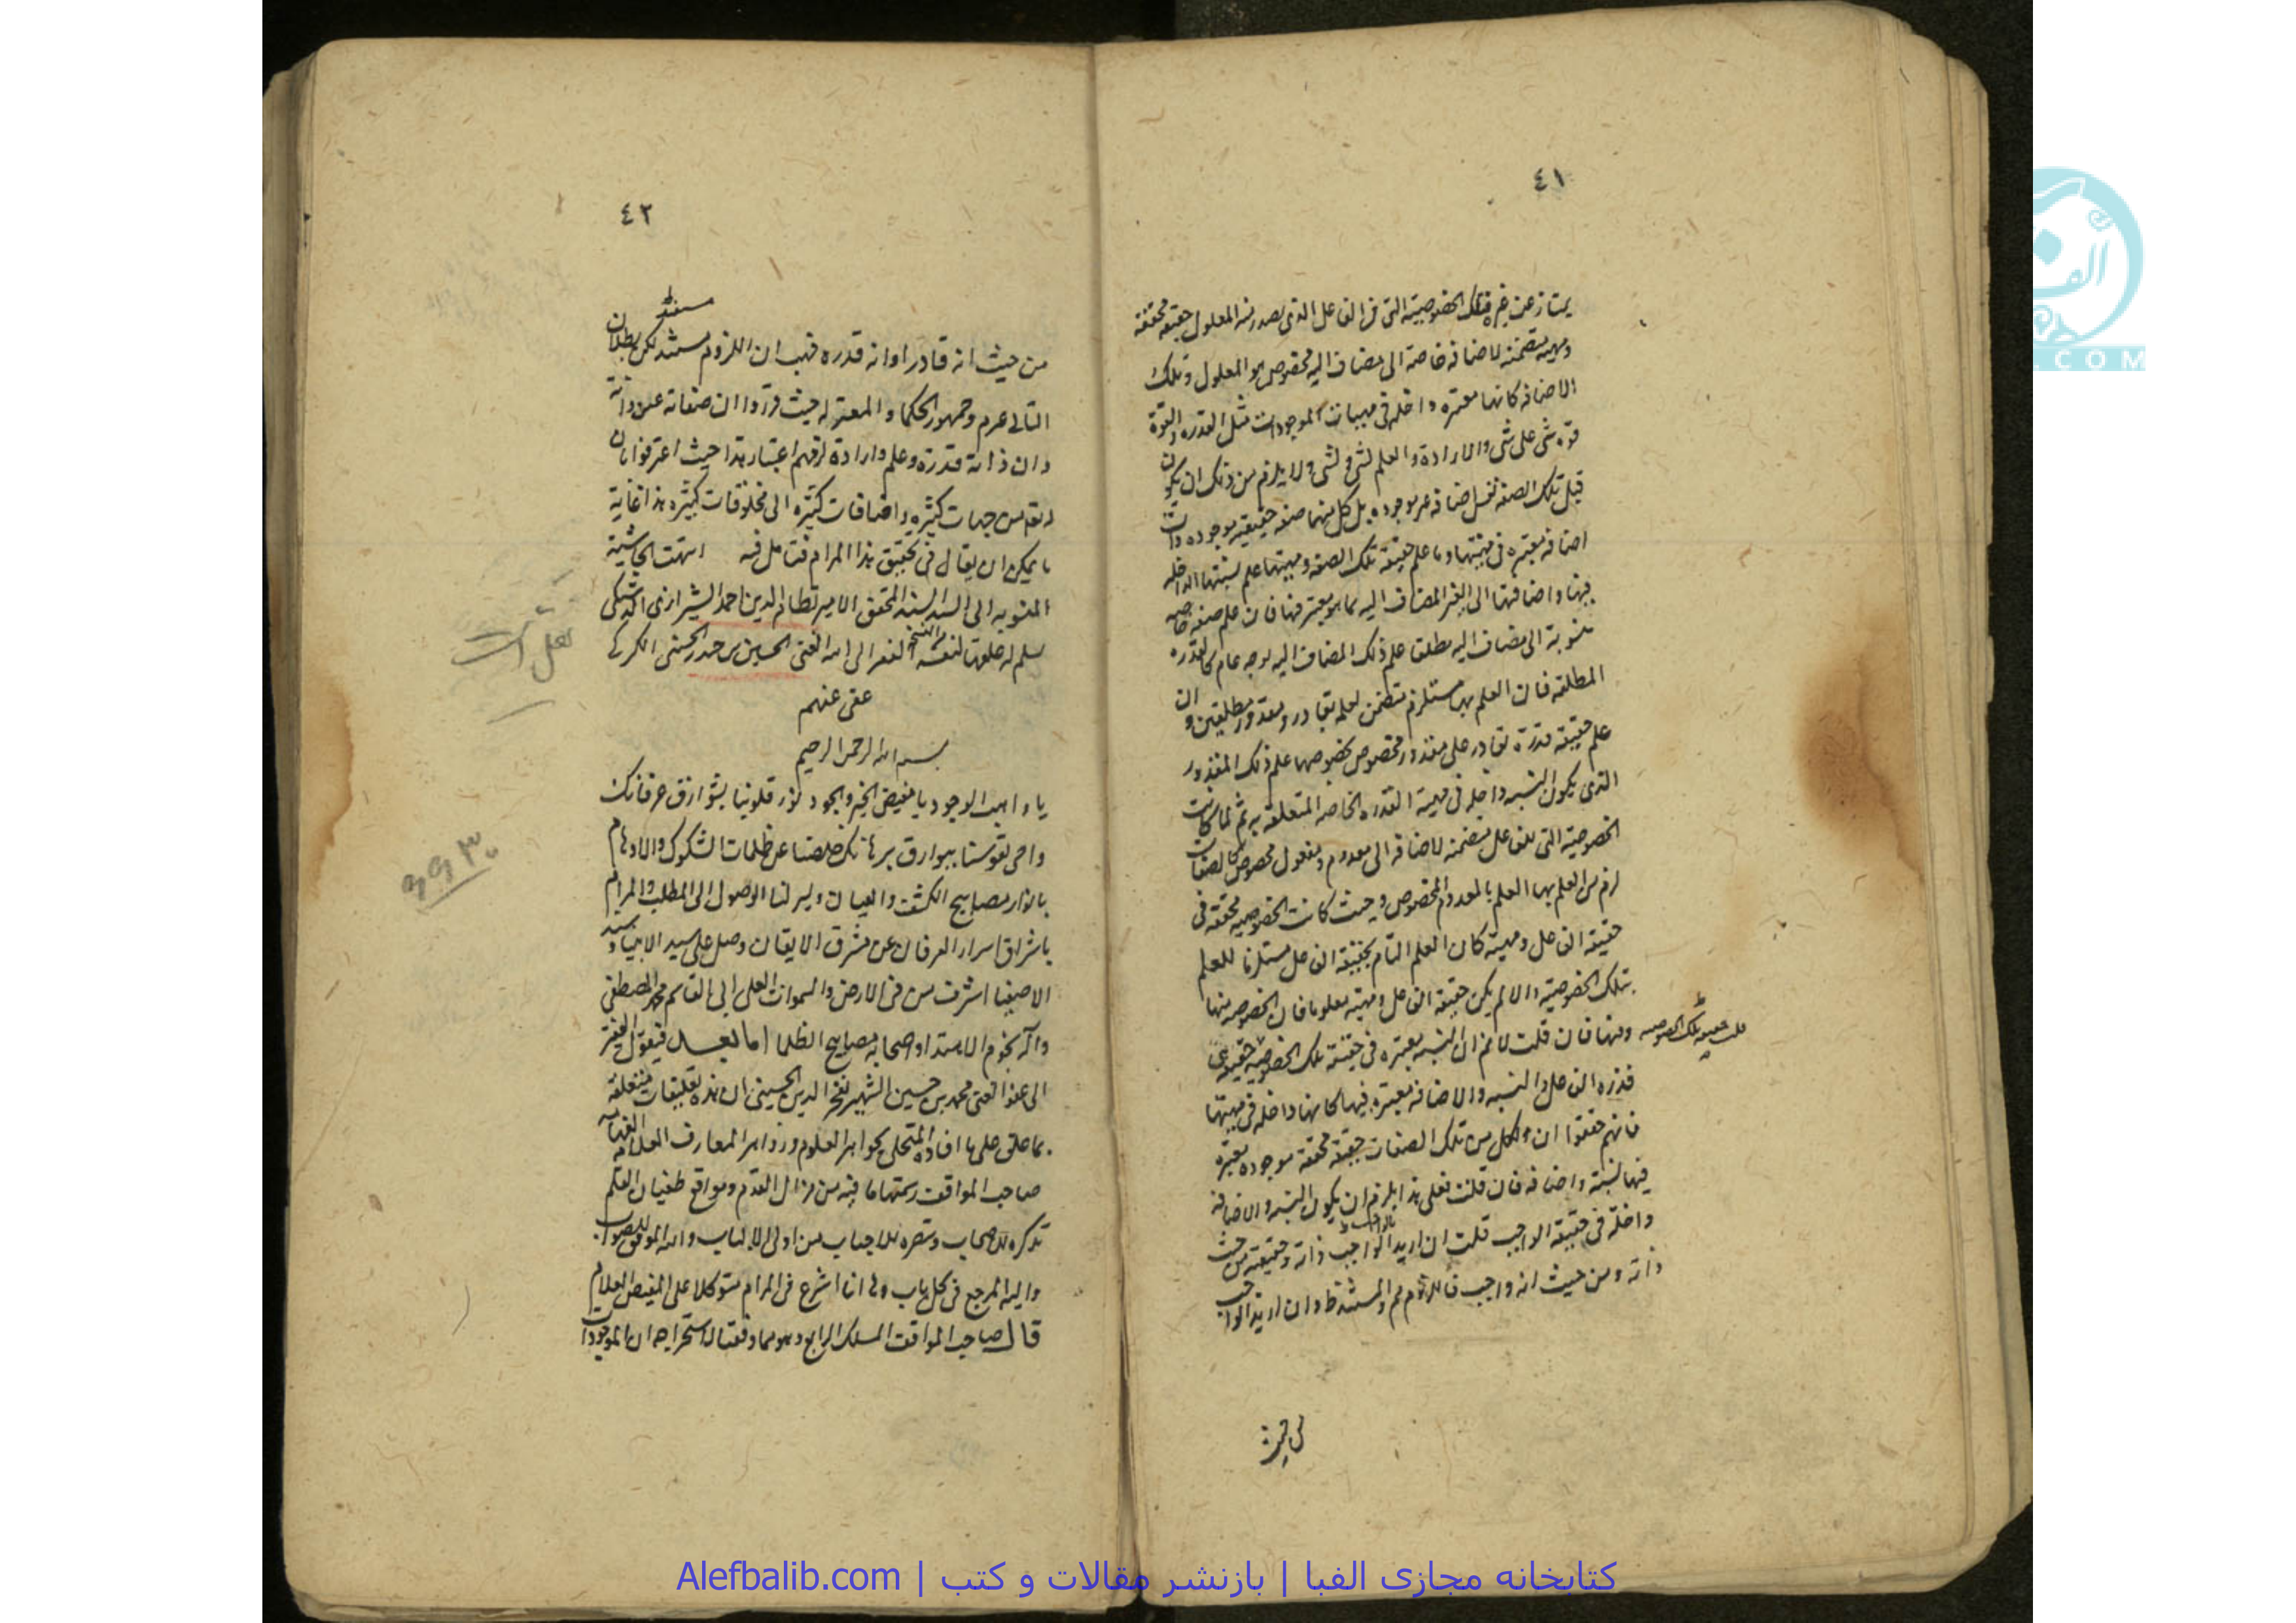 ٤١
يمتاز عن غيره فتلك الخصوصية التى فى الفاعل الذى يصدر منه المعلول حقيقة محققة
ومهية متضمنة لاضافة خاصة الى مضاف اليه مخصوص هو المعلول وتلك
الاضافة كانها معتبرة داخلة فى مهيات الموجودات مثل القدرة والقوة
قوة شى على شى والارادة والعلم لشى ولشى ولا يلزم من ذلك ان يكون
قبل تلك الصفة نفس اضافة غير موجودة بل كل منهما صفة حقيقية موجودة ذات
اضافة معتبرة فى مهيتها وما علم حقيقة تلك الصفة ومهيتها علم نسبتها الداخلة
فيها واضافتها الى الغير المضاف اليه بما هو معتبر فيها فان علم صفة خاصة
منسوبة الى مضاف اليه مطلق علم ذلك المضاف اليه بوجه عام كالقدرة
المطلقة فان العلم بها مستلزم متضمن لعلم بقادر ومقدور مطلقين وان
علم حقيقة قدرة بقادر على مقدور مخصوص بخصوصها علم ذلك المقدور
الذى يكون النسبة داخلة فى مهية القدرة الخاصة المتعلقة به ثم لما كانت
الخصوصية التى للفاعل متضمنة لاضافة الى معدوم ومفعول مخصوص كالصفات
لزم من العلم بها العلم بالمعدوم المخصوص وحيث كانت الخصوصية محققة فى
حقيقة الفاعل ومهيته كان العلم التام بحقيقة الفاعل مستلزما للعلم
بتلك الخصوصية والا لم يكن حقيقة الفاعل ومهيته معلوما فان الخصوصية منها
ومنها فان قلت لا نم ان النسبة معتبرة فى حقيقة تلك الخصوصية
قدرة الفاعل والنسبة والاضافة معتبرة فيها كانها داخلة فى مهيتها
فانهم حققوا ان لكل من تلك الصفات حقيقة محققة موجودة معتبرة
فيها نسبة واضافة فان قلت فعلى هذا يلزم ان يكون النسبة والاضافة
داخلة فى حقيقة الواجب قلت ان اريد بالواجب ذاته وحقيقته من حيث
ذاته ومن حيث انه واجب فاللزوم مم والمستند ظ وان اريد الواجب
من حيث
٤٢
من حيث انه قادر او انه قدرة فهب ان اللزوم مستند لكن بطلان
التالى مم وجمهور الحكما والمعتزلة حيث قرروا ان صفاته عين ذاته
وان ذاته قدرة وعلم وارادة لزمهم اعتبار هذا حيث اعترفوا بان
له تقدس جهات كثيرة واضافات كثيرة الى مخلوقات كثيرة هذا غاية
ما يمكن ان يقال فى تحقيق هذا المرام فتامل فيه انتهت الحاشية
المنسوبة الى السيد السند المحقق الامير نظام الدين احمد الشيرازى الدشتكى
سلم له علقها لنفسه الفقير الى الله الغنى الحسين بن حيدر الحسنى الكركى
عفى عنهم
بسم الله الرحمن الرحيم
يا واهب الوجود يا مفيض الخير والجود نور قلوبنا بشوارق عرفانك
واحى نفوسنا ببوارق برهانك خلصنا عن ظلمات الشكوك والاوهام
بانوار مصابيح الكشف والعيان ويسر لنا الوصول الى المطلب والمرام
باشراق اسرار العرفان عن مشرق الايقان وصل على سيد الانبياء وسند
الاصفيا اشرف من فى الارض والسموات العلى ابى القاسم محمد المصطفى
وآله نجوم الاهتدا واصحابه مصابيح الظلما اما بعد فيقول الفقير
الى عفو الغنى محمد بن حسين الشهير بفخر الدين الحسينى ان هذه تعليقات متعلقة
بما علق على ما افاده المتحلى بجواهر العلوم وزواهر المعارف العلامة الفهامة
صاحب المواقف رسمتها ما فيه من مزال القدم ومواقع طغيان القلم
تذكرة للاصحاب وتبصرة للاحباب من اولى الالباب والله الموفق للصواب
واليه المرجع فى كل باب وها انا اشرع فى المرام متوكلا على المفيض العلام
قال صاحب المواقف المسلك الرابع وهو مما وفقنا لاستخراجه ان الموجودات
كتابخانه مجازی الفبا | بازنشر مقالات و کتب | Alefbalib.com